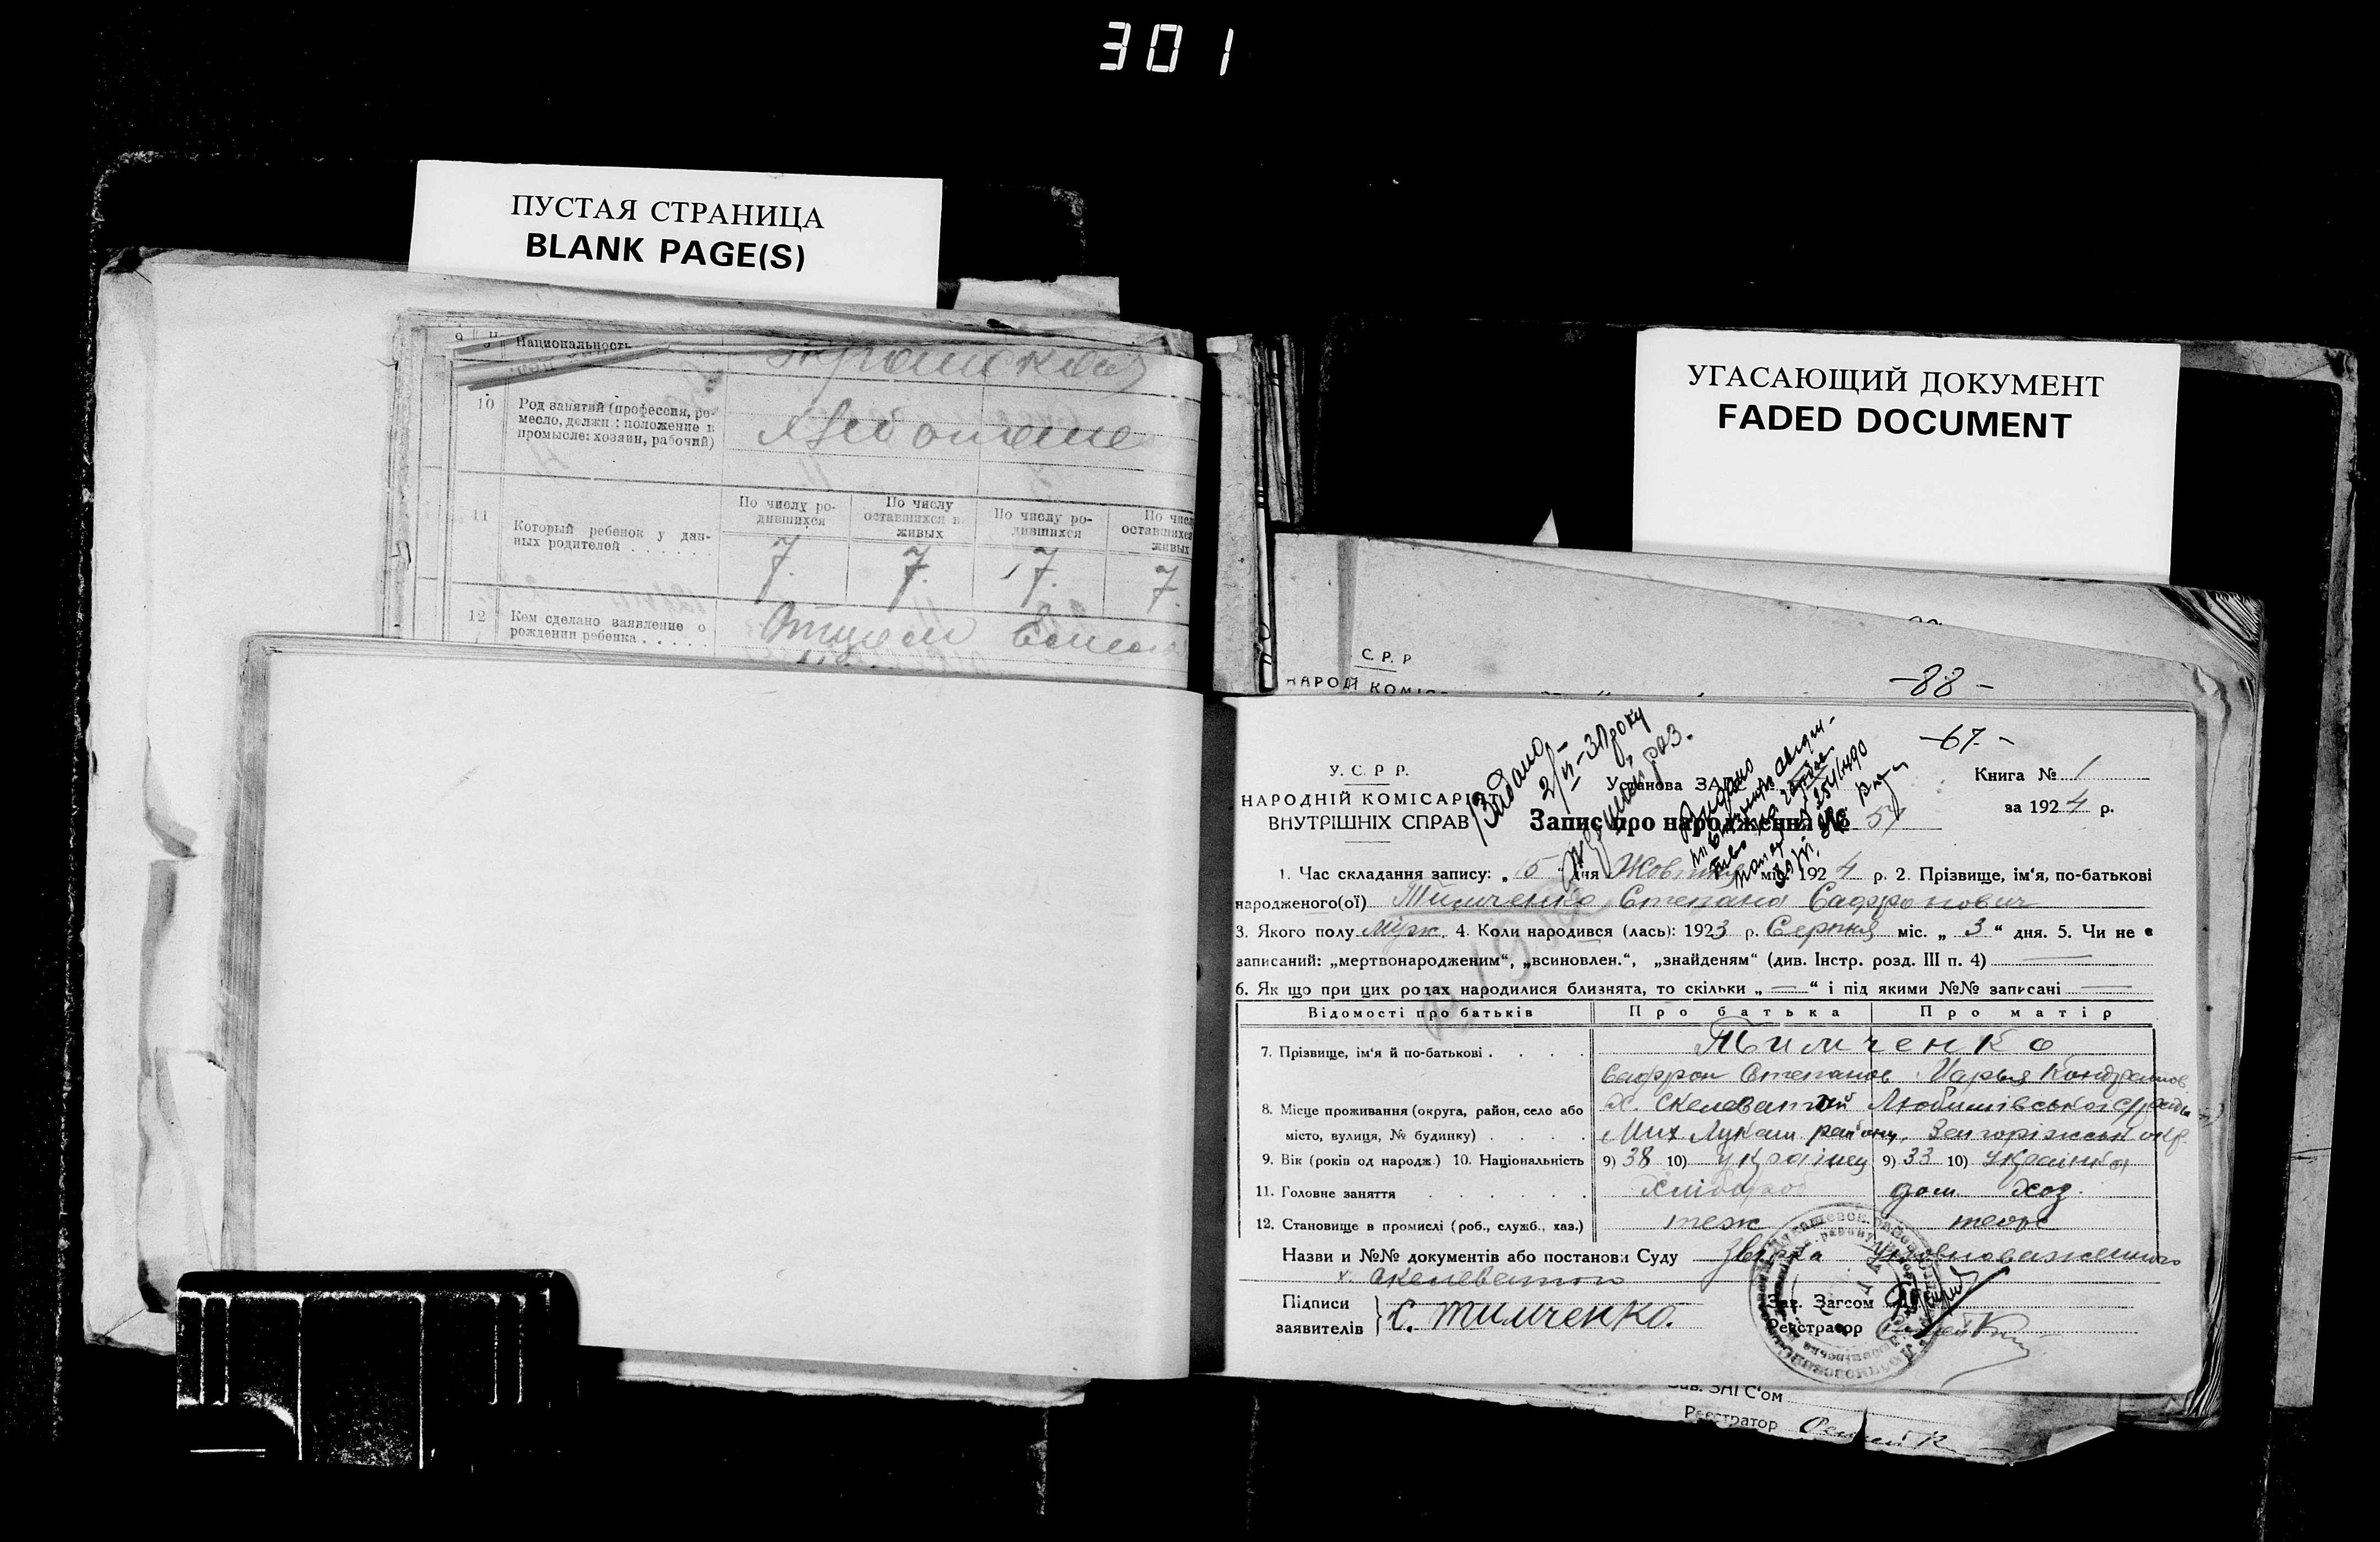 301
ПУСТАЯ СТРАНИЦА
BLANK PAGE(S)
УГАСАЮЩИЙ ДОКУМЕНТ
FADED DOCUMENT
9 Национальность
10 Род занятий (профессия, ре-
месло, должн.; положение в
промысле: хозяин, рабочий)
11 Который ребенок у дан-
ных родителей . . . . . . .
По числу ро-
дившихся
По числу
оставшихся в
живых
По числу ро-
дившихся
По числ
оставшихся
живых
7. 7. 7. 7.
12 Кем сделано заявление о
рождении ребенка . . . . .
Отцом
С. Р. Р
НАРОД КОМІС
-88-
-67.-
У. С. Р. Р.
НАРОДНІЙ КОМІСАРІЯТ
ВНУТРІШНІХ СПРАВ
Видано
2/VI-30 року
раз.
Установа ЗАГС
Книга № 1
за 1924 р.
Запис про народження №
1. Час складання запису: „15 дня Жовтня міс. 1924 р. 2. Прізвище, ім‘я, по-батькові
народженого(ої) Тимченко Степана Саффронович
3. Якого полу муж. 4. Коли народився (лась): 1923 р. Серпня міс. „ 3 “ дня. 5. Чи не є
записаний: „мертвонародженим“, „всиновлен.“, „знайденям“ (див. Інстр. розд. III п. 4)
6. Як що при цих родах народилися близнята, то скільки „ — “ і під якими №№ записані —
Відомості про батьків Про батька Про матір
7. Прізвище, ім‘я й по-батькові . . . . Тимченко
Саффрон Степанов Марья Кондратов
8. Місце проживання (округа, район, село або Х. Скелеватий Любимівської с/ради
місто, вулиця, № будинку) . . . . Мих Лукаш району, Запоріжськ окр.
9. Вік (років од народж.) 10. Національність 9) 38 10) українец 9) 33 10) українка
11. Головне заняття . . . . . . Хлібороб дом хоз.
12. Становище в промислі (роб., служб., хаз.) теж теж
Назви и №№ документів або постанови Суду Уповноваженого
х. Скелеватого
Підписи
заявителів } С. Тимченко.
Зав. Загсом
Реєстратор
Зав. ЗАГС‘ом
Реєстратор